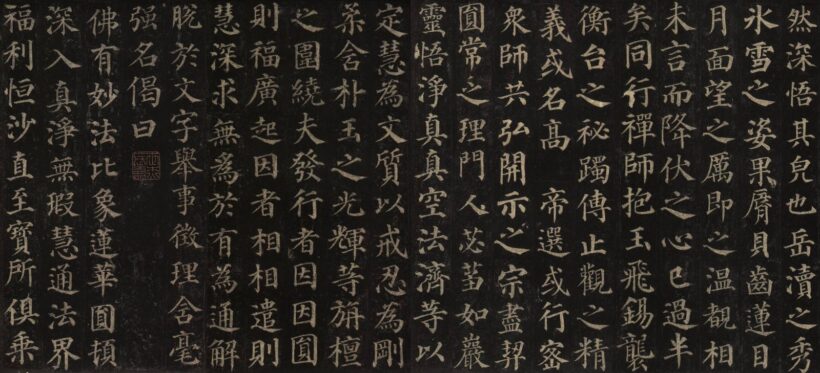 然深悟其皃也岳瀆之秀
氷雪之姿果脣貝齒蓮目
月面望之厲即之温覩相
未言而降伏之心已過半
矣同行禪師抱玉飛錫襲
衡台之祕躅傳止觀之精
義或名高　帝選或行密
衆師共弘開示之宗盡契
圓常之理門人苾芻如巖
靈悟淨真真空法濟等以
定慧為文質以戒忍為剛
柔含朴玉之光輝等旃檀
之圍繞夫發行者因因圓
則福廣起因者相相遣則
慧深求無為於有為通解
脫於文字舉事徵理含毫
强名偈曰
佛有妙法比象蓮華圓頓
深入真淨無瑕慧通法界
福利恒沙直至寶所俱乘